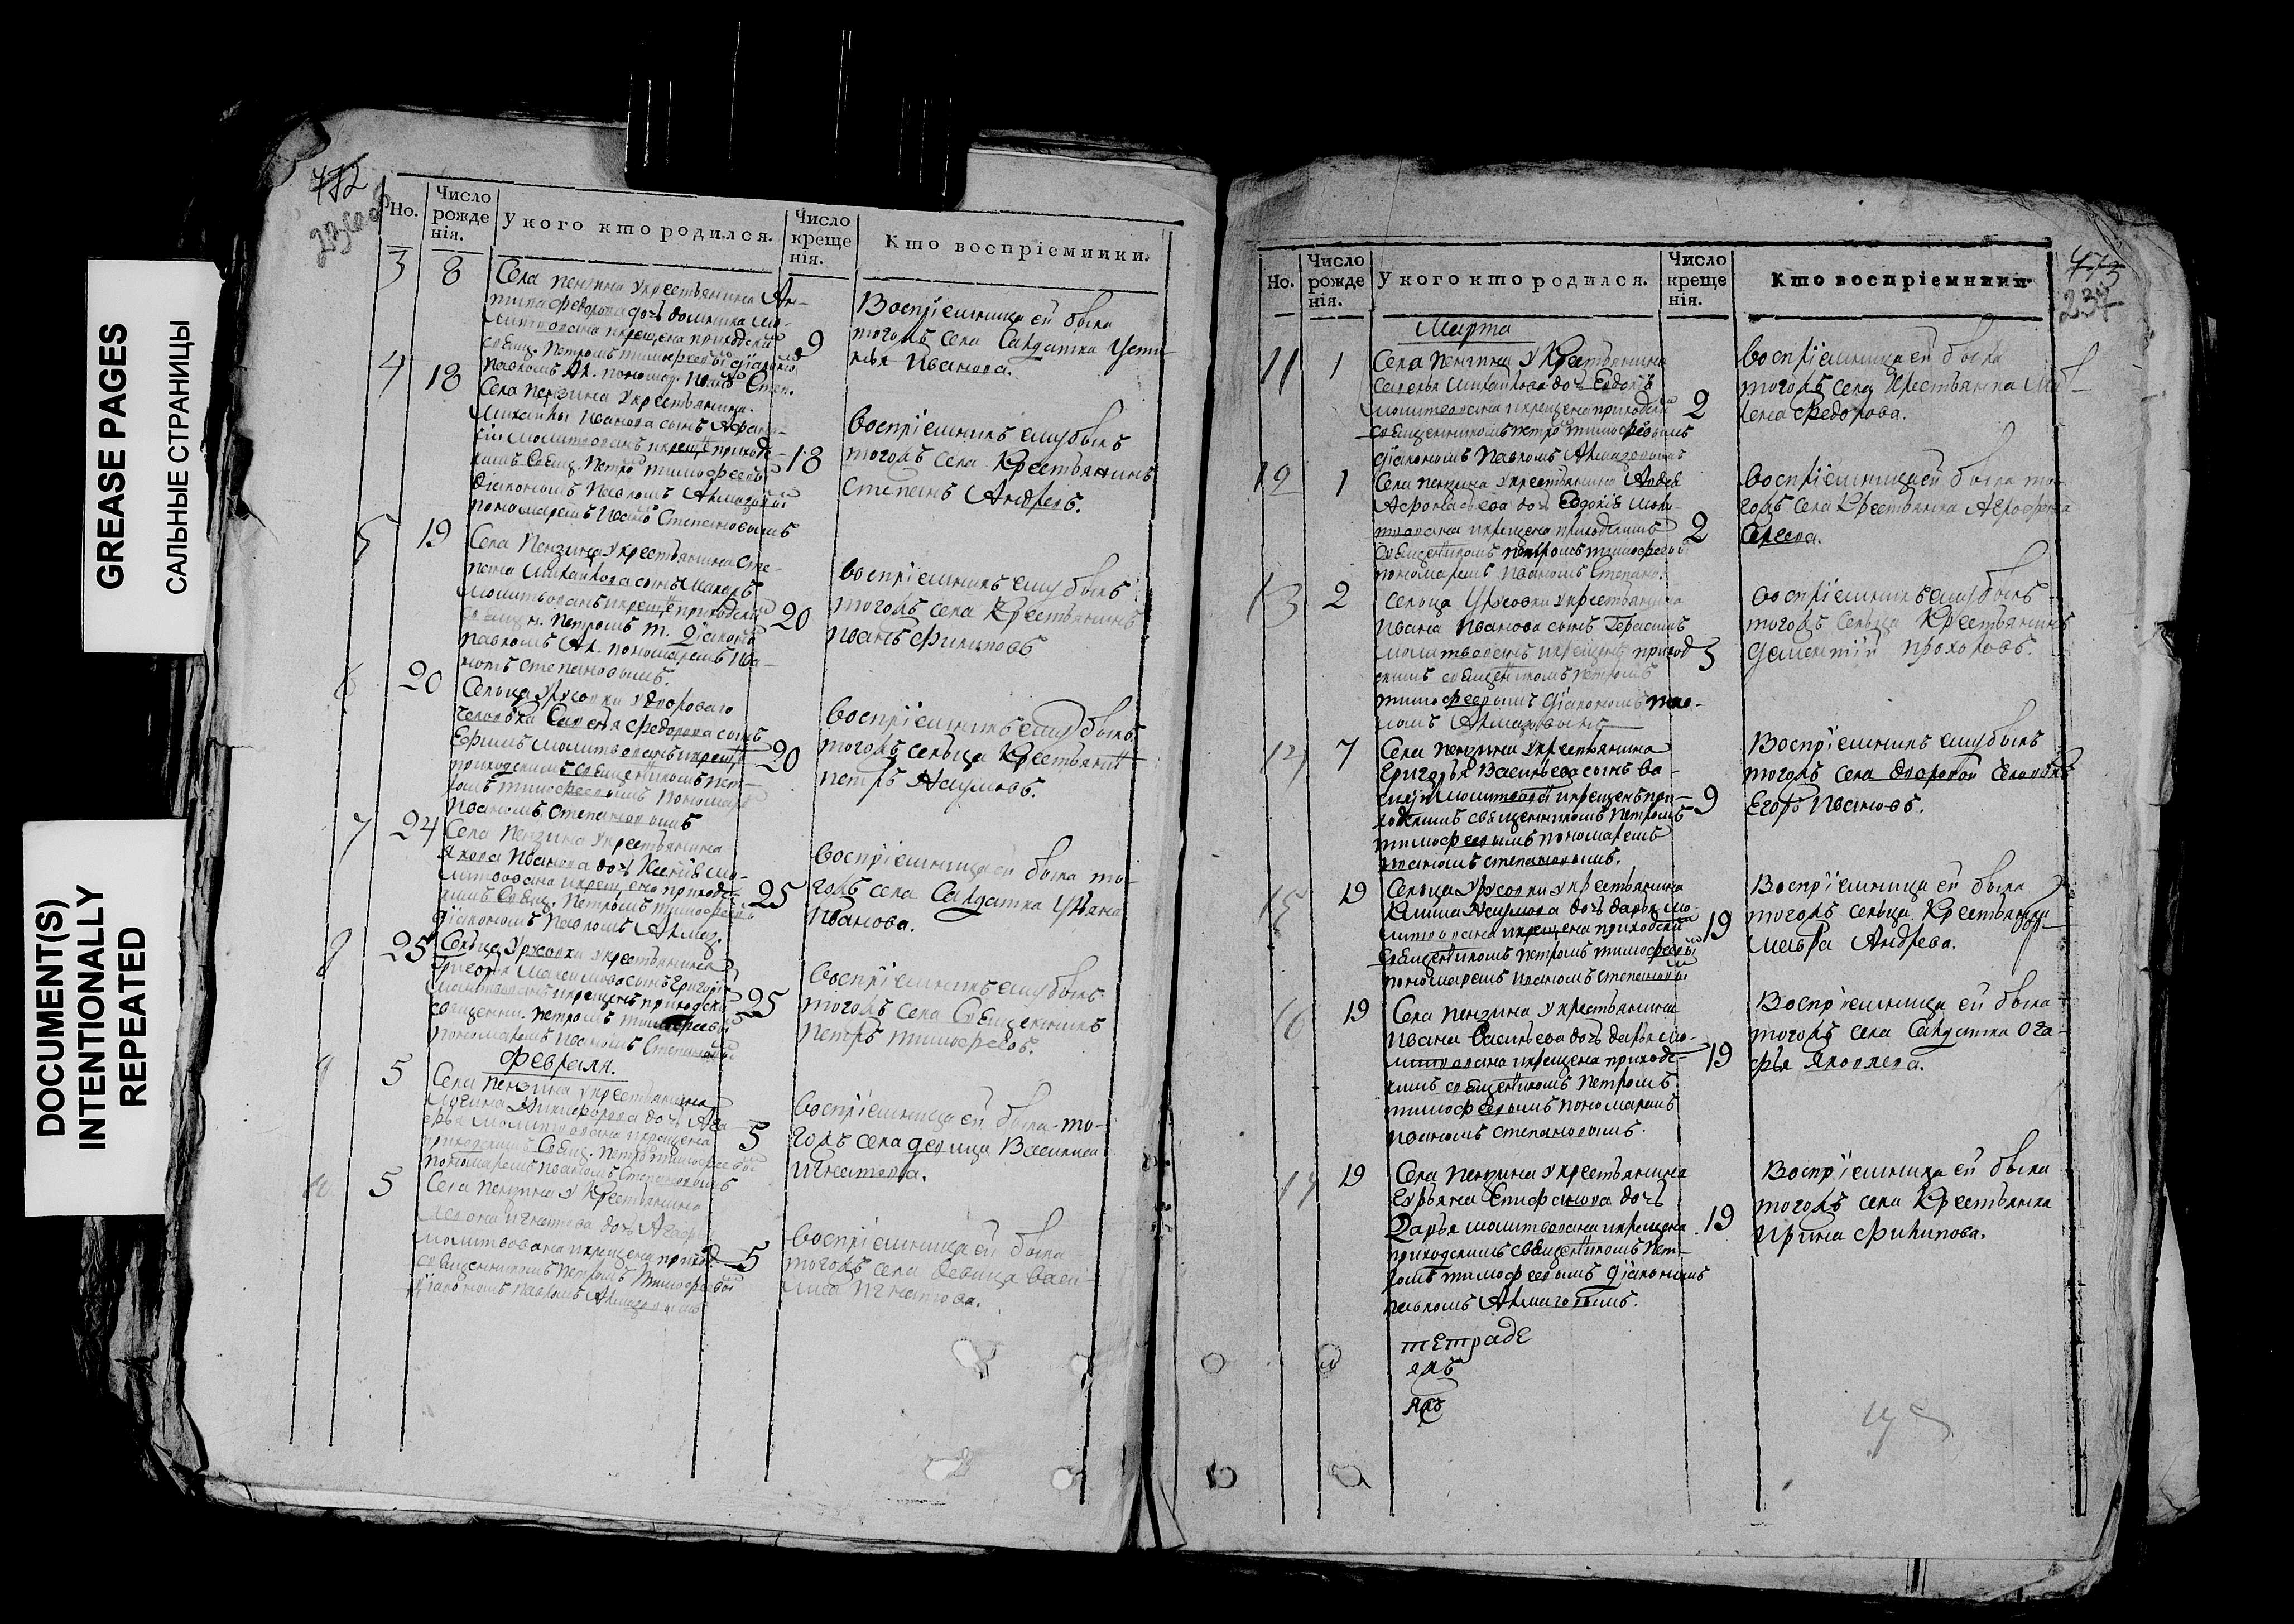 GREASE PAGES
САЛЬНЫЕ СТРАНИЦЫ
DOCUMENT(S)
INTENTIONALLY
REPEATED
236 об
Но.
Число рожде нія.
У кого кто родился.
Число креще нія.
Кто воспріемники.
3
8
Села пензина укрестьянина Ан-
типа федорова дочь домника мо-
литвована икрещена приходским
свящ. Петромъ тимофеевы діаконо
павломъ Ал. поном. Ива Степ.
9
Воспріемница ей была
тогожъ села Салдатка Усти-
нья Иванова.
4
18
Села пензина укрестьянина
Михаилы Иванова сынъ Афана-
сіи молитвованъ икрещенъ приход-
скимъ Свящ. Петро тимофеевы
діакономъ Павломъ Алмазовы
пономаремъ Ивано Степановымъ
18
Воспріемникъ емубылъ
тогожъ села Крестьянинъ
Степанъ Андреевъ.
5
19
Села Пензина укрестьянина Сте-
пана Михайлова сынъ Макаръ
молитвованъ икреще приходски
свящн. Петромъ Т. діакономъ
павломъ Ал. пономаремъ Ива-
номъ степановымъ.
20
воспріемникъ емубылъ
тогожъ села Крестьянинъ
Иванъ Филиповъ
6
20
Сельца Урусовки удвороваго
человека Савелья Федорова сынъ
Ефимъ молитвованъ икреще
приходскимъ священникомъ пет-
ромъ тимофеевымъ пономаре
Иваномъ Степановымъ
20
воспріемникъ емубылъ
тогожъ сельца Крестьянинъ
петръ Наумовъ.
7
24
Села Пензина укрестьянина
Якова Иванова дочь Ксенія мо-
литвована икрещена приход-
скимъ Свящ. Петромъ тимофеевы
діакономъ Павломъ Алмаз.
25
Воспріемница ей была то-
гожъ села Салдатка Ульяна
Иванова.
8
25
Сельца Урусовки укрестьянина
Григорья Максимова сынъ Григорій
молитвованъ икрещенъ приходски
священн. Петромъ тимофеевы
пономаремъ Иваномъ Степановы
25
Воспріемникъ емубылъ
тогожъ села Священникъ
Петръ тимофеевъ.
февраля.
9
5
Села пензина укрестьянина
Логина Никифорова дочь Ага-
фья молитвована икрещена
приходскимъ Свящ. Петро тимофеевы
пономаремъ Иваномъ Степановымъ
5
воспріемница ей была то-
гожъ села девица Василиса
Игнатова.
10
5
Села пензина у Крестьянина
Игнатова дочь Агафья
молитвована икрещена приход
священникомъ Петромъ Тимофеевы
діакономъ павломъ Алмазовымъ
5
воспріемница ей была
тогожъ села девица Васи-
лиса Игнатова.
237
Но.
Число рожде нія.
У кого кто родился.
Число креще нія.
Кто воспріемники
Марта
11
1
Села Пензина у Крестьянина
Савелья Михайлова дочь Евдокія
молитвована икрещена приходски
священникомъ петро тимофеевымъ
діакономъ Павломъ Алмазовымъ
2
воспріемница ей была
тогожъ села крестьянка
федорова.
12
1
Села пензина укрестьянина
Афонасьева дочь Евдокія моли-
твована икрещена приходскимъ
священникомъ петромъ тимофеевы
пономаремъ Иваномъ Степано.
2
воспріемница ей была то-
гожъ села Крестьянка Агрофена
13
2
Сельца Урусовки укрестьянина
Ивана Иванова сынъ Герасимъ
молитвованъ икрещенъ приход
скимъ священникомъ петромъ
тимофеевымъ діакономъ пав-
ломъ Алмазовымъ
3
воспріемникъ емубылъ
тогожъ сельца Крестьянинъ
Дементій прохоровъ.
14
7
Села пензина укрестьянина
Григорья Васильева сынъ Ва-
силій молитвова икрещенъ при-
ходскимъ священникомъ петромъ
тимофеевымъ пономаремъ
Иваномъ степановымъ.
9
Воспріемникъ емубылъ
тогожъ села дворовой человекъ
Егоръ Ивановъ.
15
19
Сельца Урусовки укрестьянина
Наумова дочь дарья мо-
литвована икрещена приходски
священникомъ петромъ тимофеевы
пономаремъ иваномъ степановы
19
Воспріемница ей была
тогожъ сельца Крестьянка
Мавра Андреева.
16
19
Села пензина укрестьянина
Ивана Васильева дочь дарья мо-
литвована икрещена приход-
скимъ священникомъ петромъ
тимофеевымъ пономаремъ
Иваномъ степановымъ.
19
Воспріемница ей была
тогожъ села Салдатка Ога-
фья Яковлева.
17
19
Села пензина укрестьянина
Епифанова дочь
Дарья молитвована икрещена
приходскимъ священникомъ пет-
ромъ тимофеевымъ діакономъ
павломъ Алмазовымъ.
19
Воспріемница ей была
тогожъ села Крестьянка
Ирина Филипова.